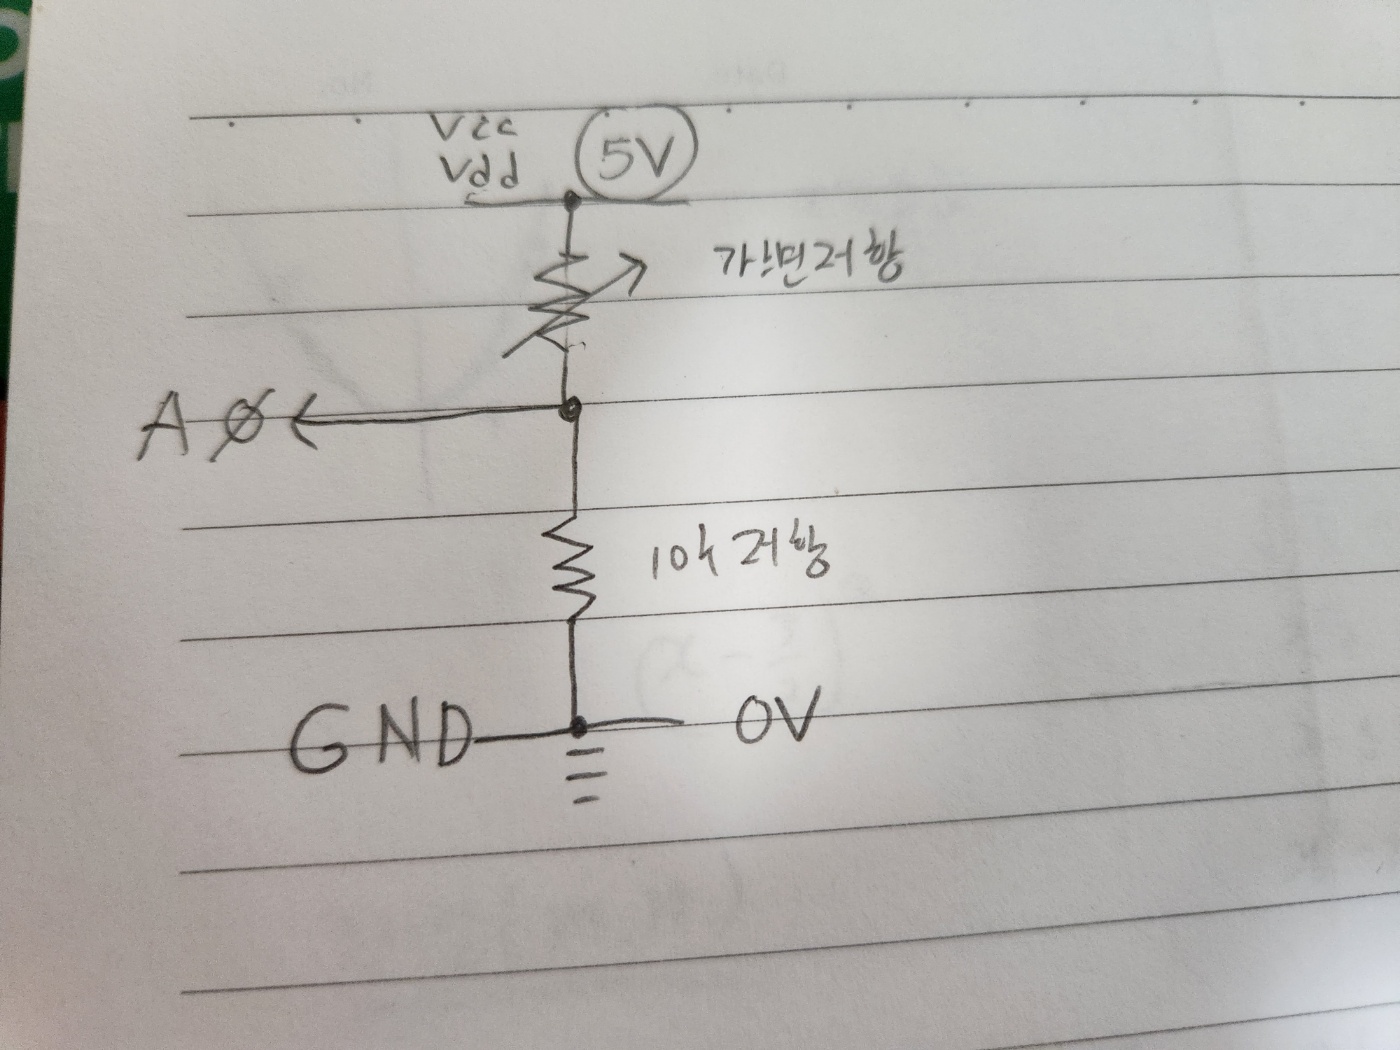 Vcc
Vdd
5V
가변저항
A0
10k 저항
GND
0V